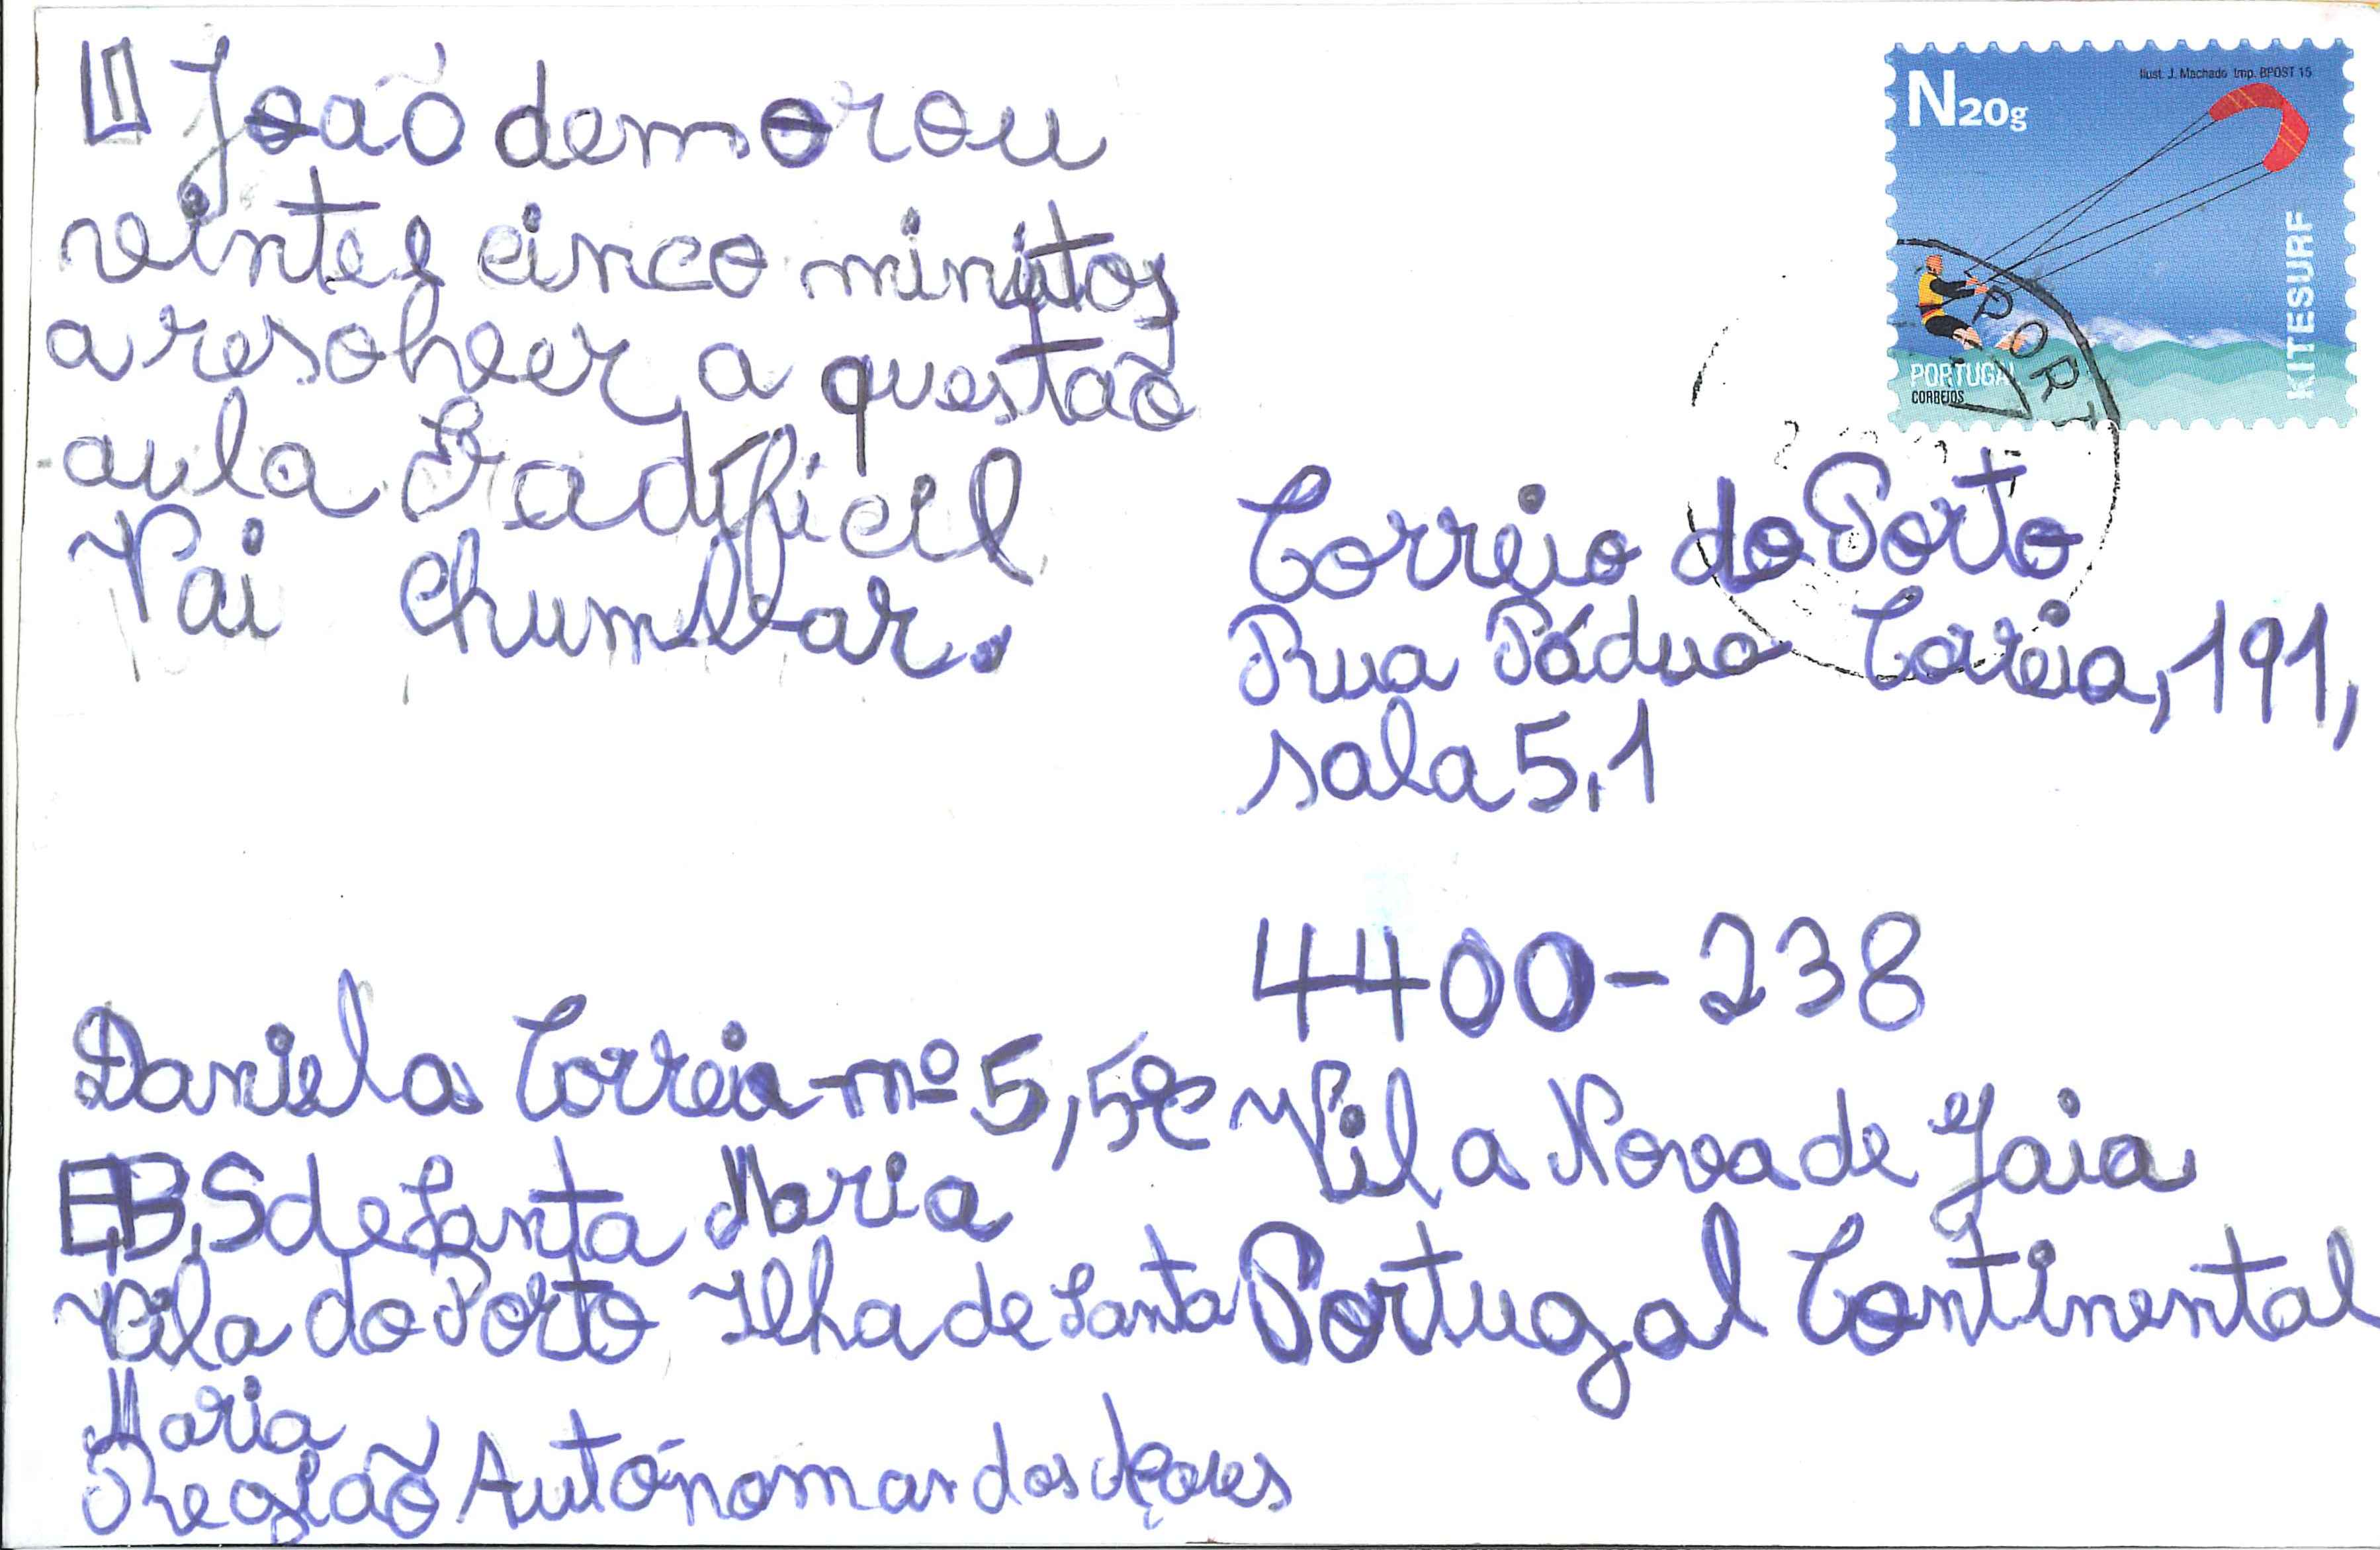 João demorou
vinte e cinco minutos
a resolver a questão
aula Era difícil
Vai chumbar.
N20g
Ilust. J. Machado Imp. BPOST 15
KITESURF
PORTUGAL
CORREIOS
PORT
Correio do Porto
Rua Pádua Correia, 191,
sala 5,1
4400-238
Vila Nova de Gaia
Portugal Continental
Daniela Correia nº 5, 5ºC
E,B,S de Santa Maria
Vila do Porto Ilha de Santa
Maria
Região Autónoma dos Açores